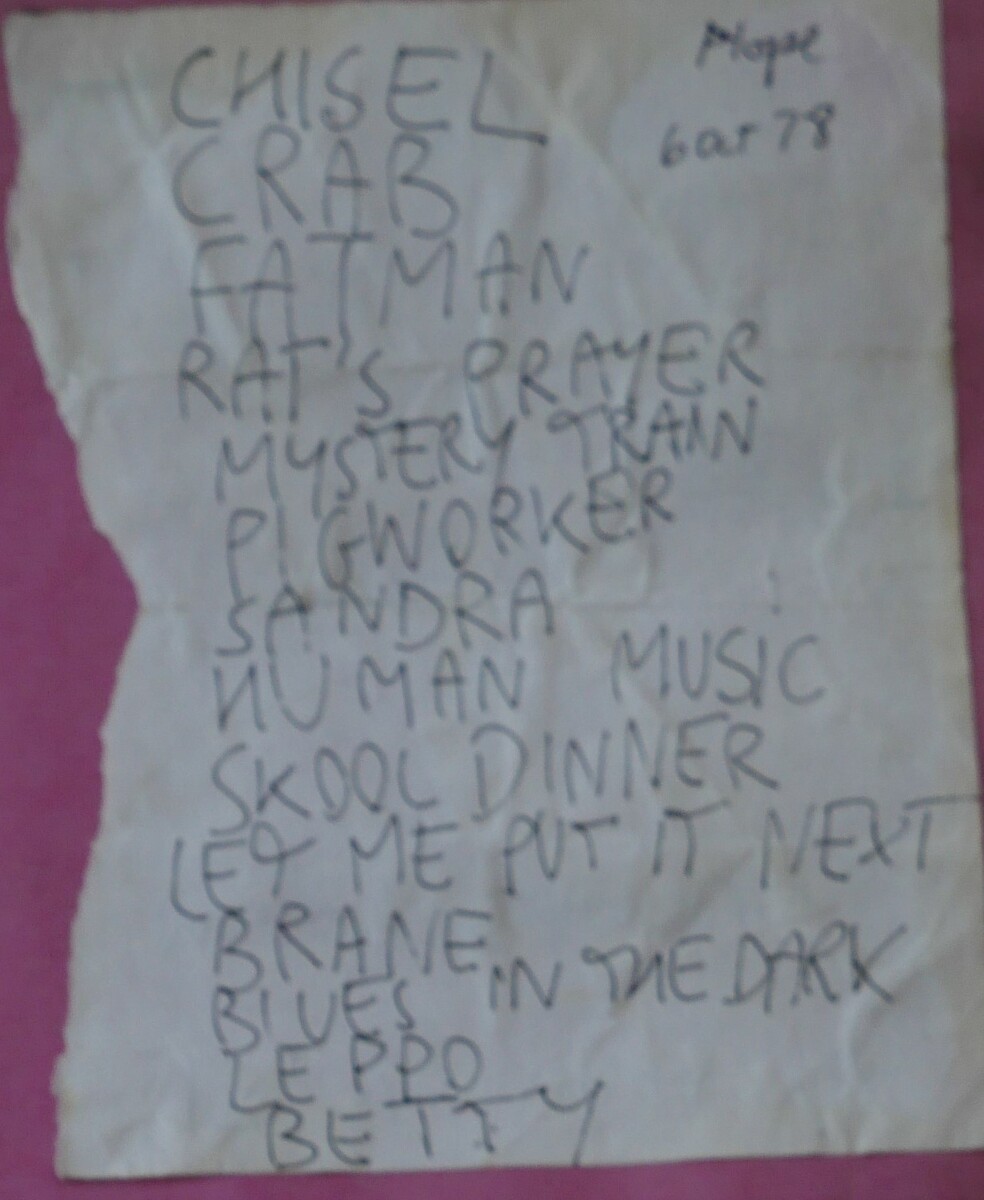 Hope
6 Oct 78
CHISEL
CRAB
FATMAN
RAT'S PRAYER
MYSTERY TRAIN
PIGWORKER
SANDRA
HUMAN MUSIC
SKOOL DINNER
LET ME PUT IT NEXT
BRANE
BLUES IN THE DARK
LEPPO
BETTY